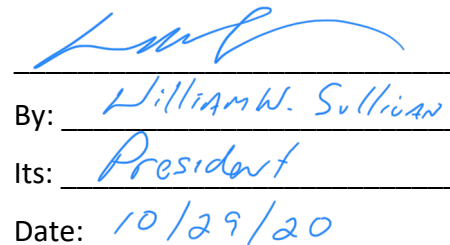 By: William W. Sullivan
Its: President
Date: 10/29/20